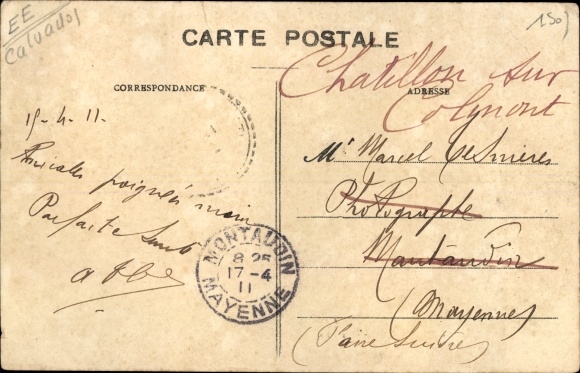 EE
Calvados
150
CARTE POSTALE
CORRESPONDANCE
ADRESSE
Chatillon sur
Colmont
15-4-11.
Amicales poignées main
Parfaite Santé
Mr Marcel
Photographe
Montaudin
(Mayenne)
(Faire Suivre)
MONTAUDIN
8 25
17-4
11
MAYENNE